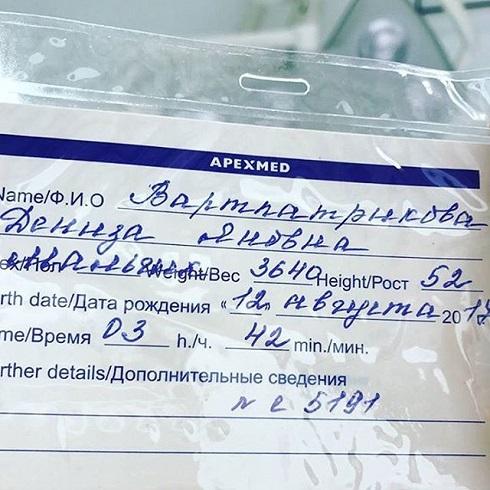 APEXMED
Name/Ф.И.О Вартпатрикова
Дениза Яновна
Мальчик Weight/Вес 3640 Height/Рост 52
rth date/Дата рождения «12» августа 2017
me/Время 03 h./ч. 42 min./мин.
rther details/Дополнительные сведения
н с 5191